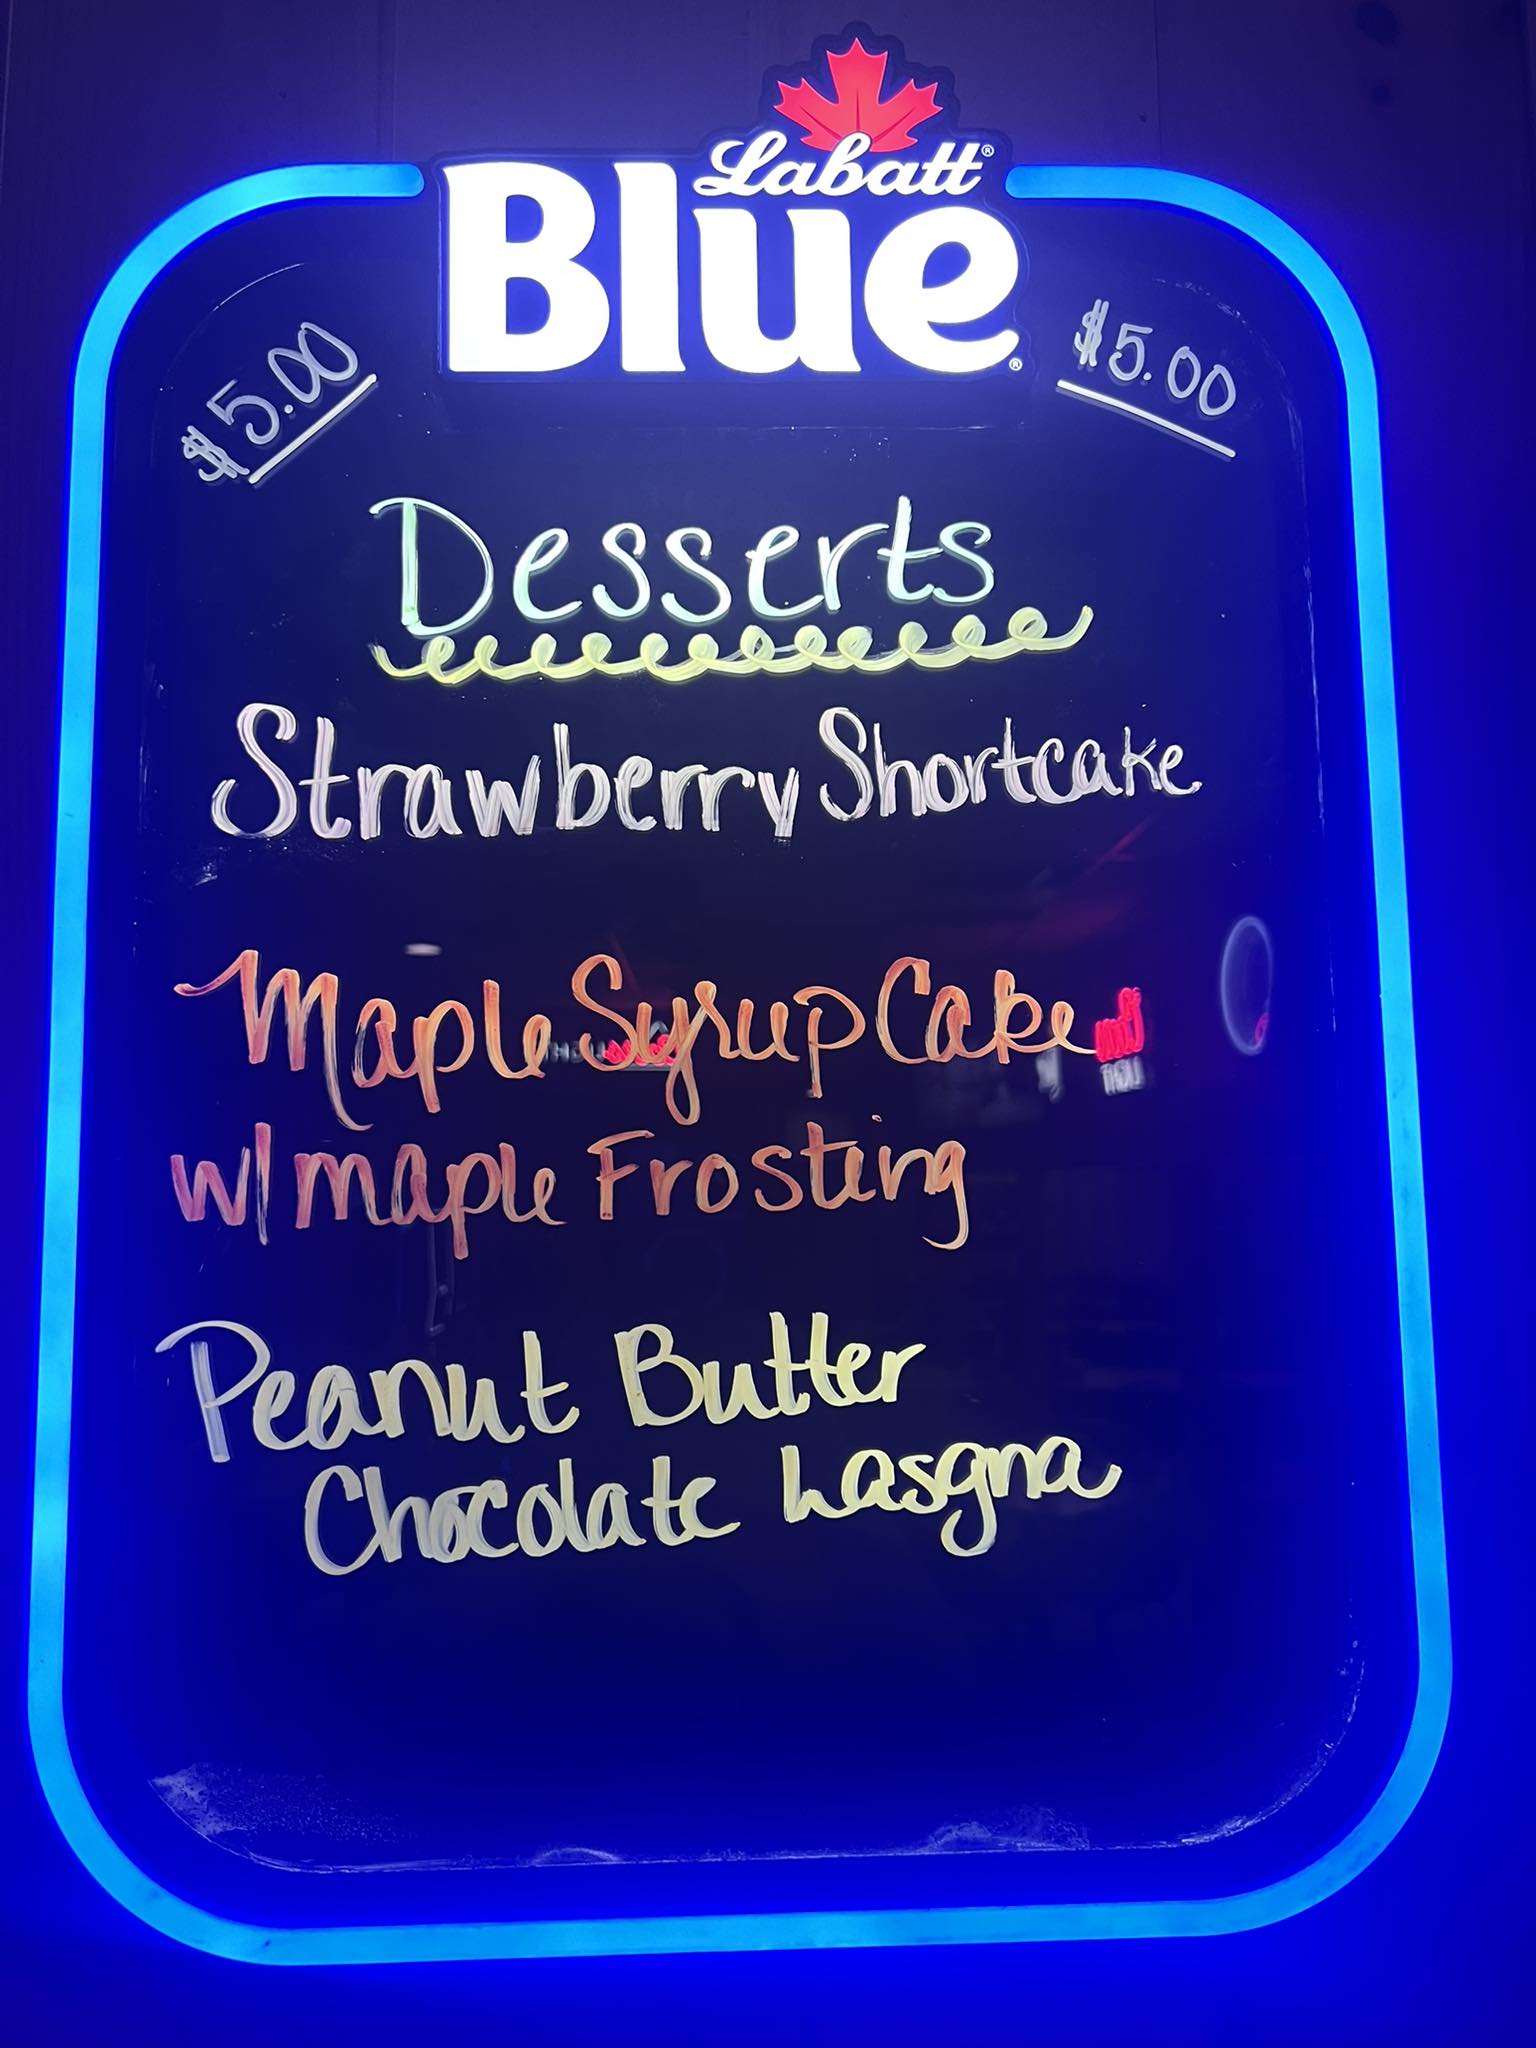 Labatt®
Blue®
$5.00 $5.00
Desserts
Strawberry Shortcake
Maple Syrup Cake
w/ maple Frosting
Peanut Butter
Chocolate Lasgna